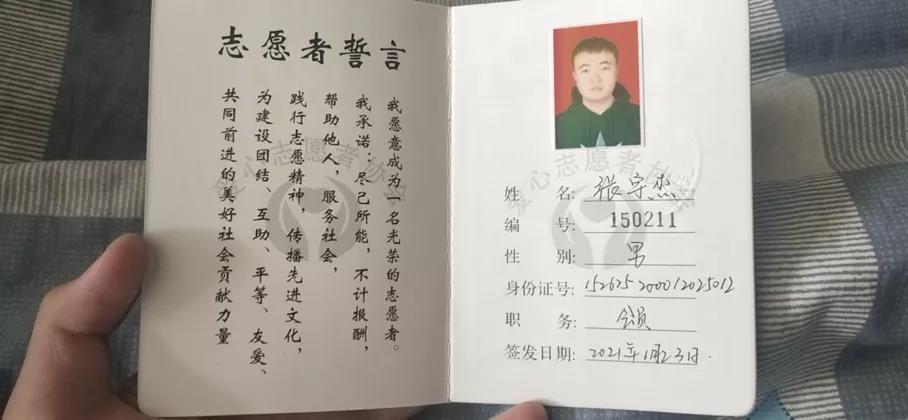 志愿者誓言
我愿意成为一名光荣的志愿者。
我承诺：尽己所能，不计报酬，
帮助他人，服务社会，
践行志愿精神，传播先进文化，
为建设团结、互助、平等、友爱、
共同前进的美好社会贡献力量
爱心志愿者协会
爱心志愿者协会
姓 名: 张宇杰
编 号: 150211
性 别: 男
身份证号: 152625200012025012
职 务: 会员
签发日期: 2021年1月23日.